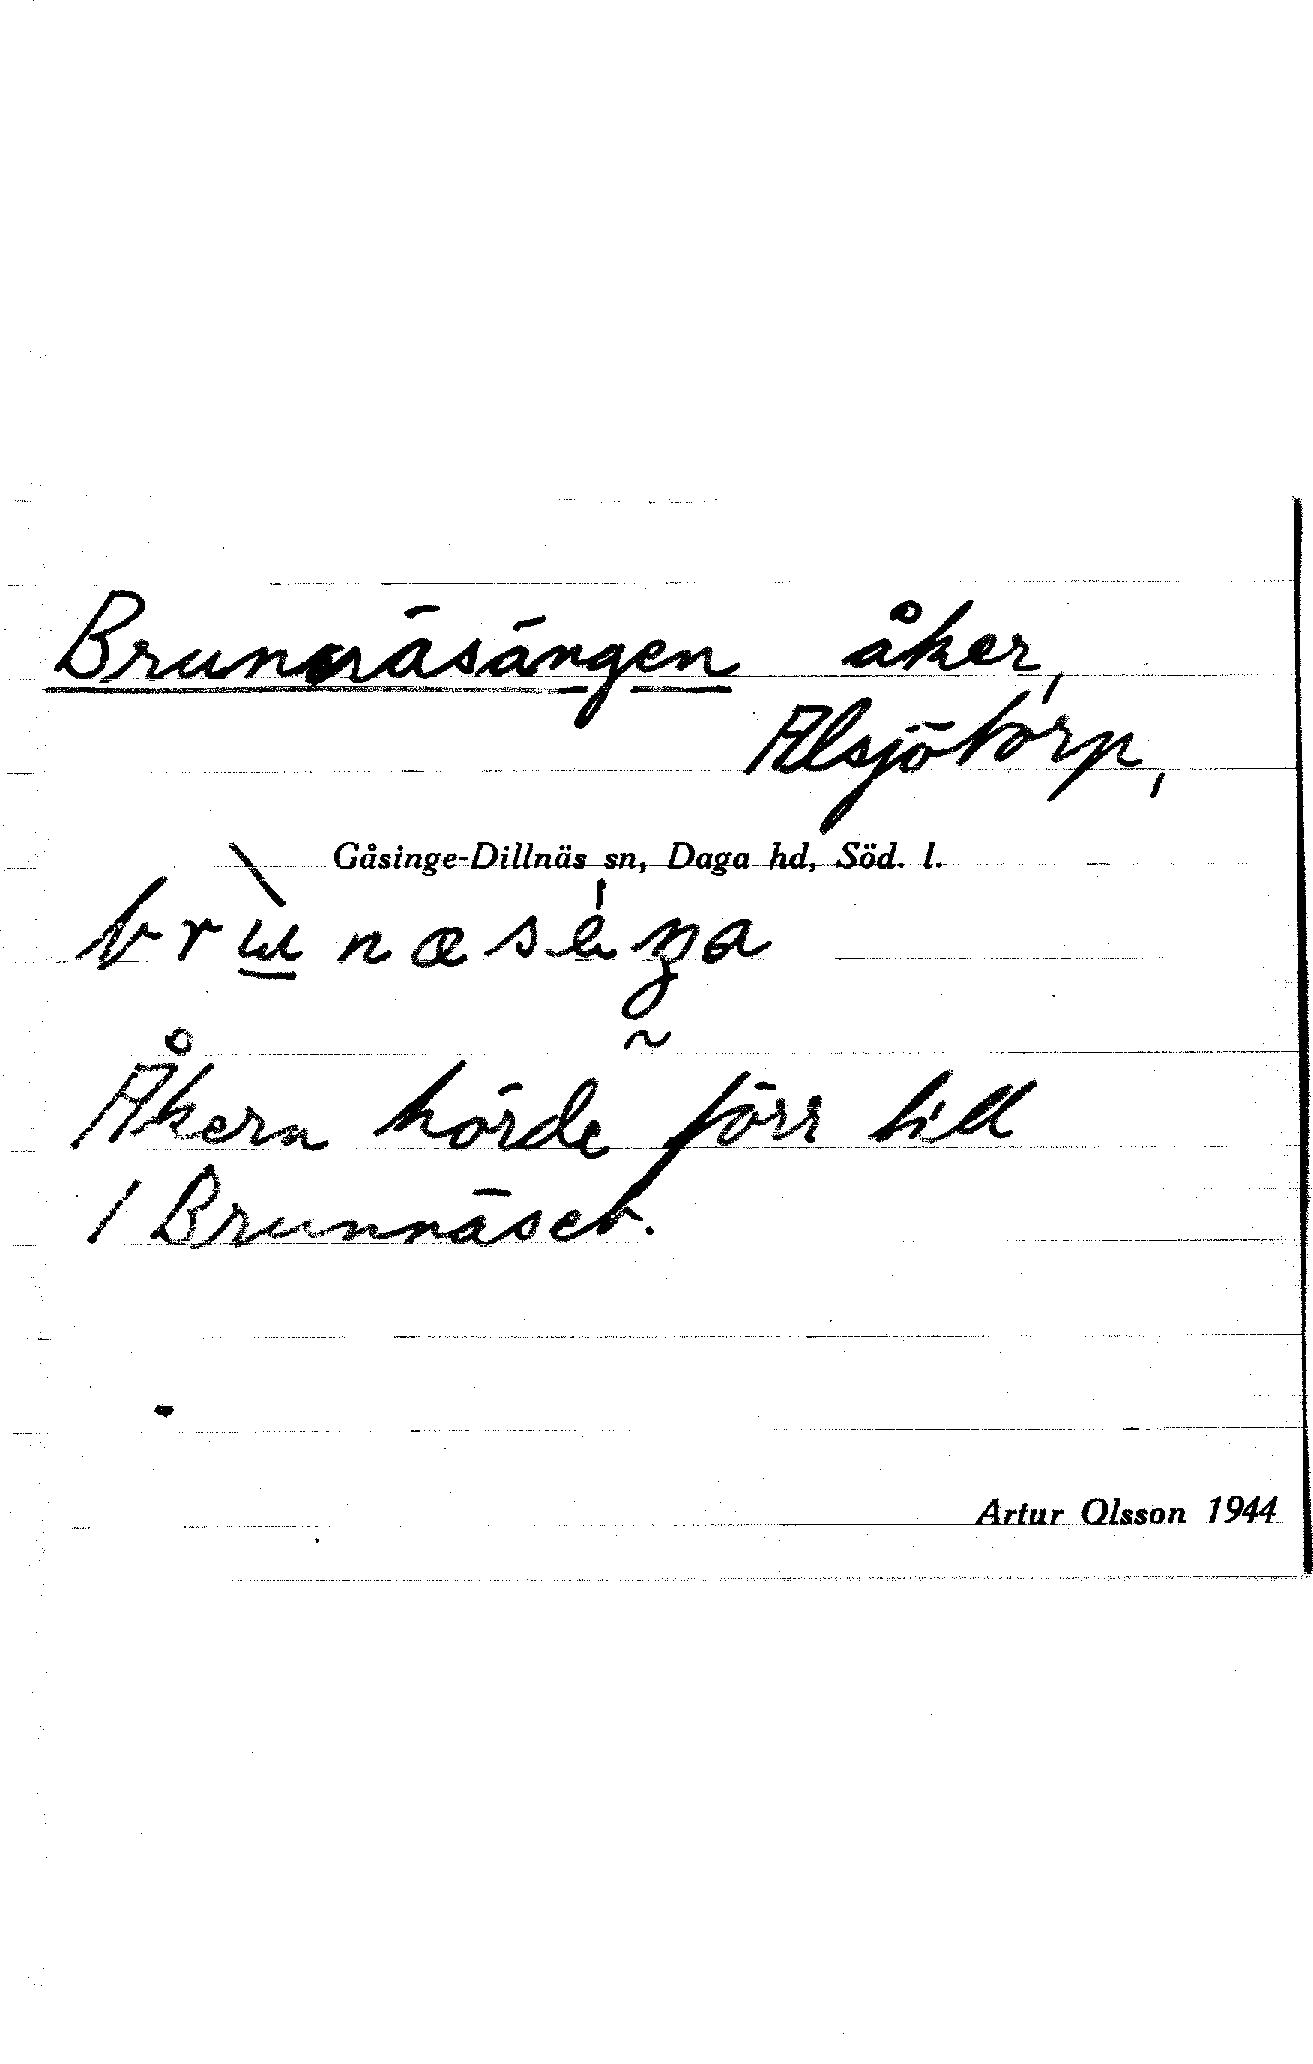 Brunnäsängen åker,
Alsjötorp,
Gåsinge-Dillnäs sn, Daga hd, Söd. l.
Åkern hörde förr till
/ Brunnäset.
Artur Olsson 1944